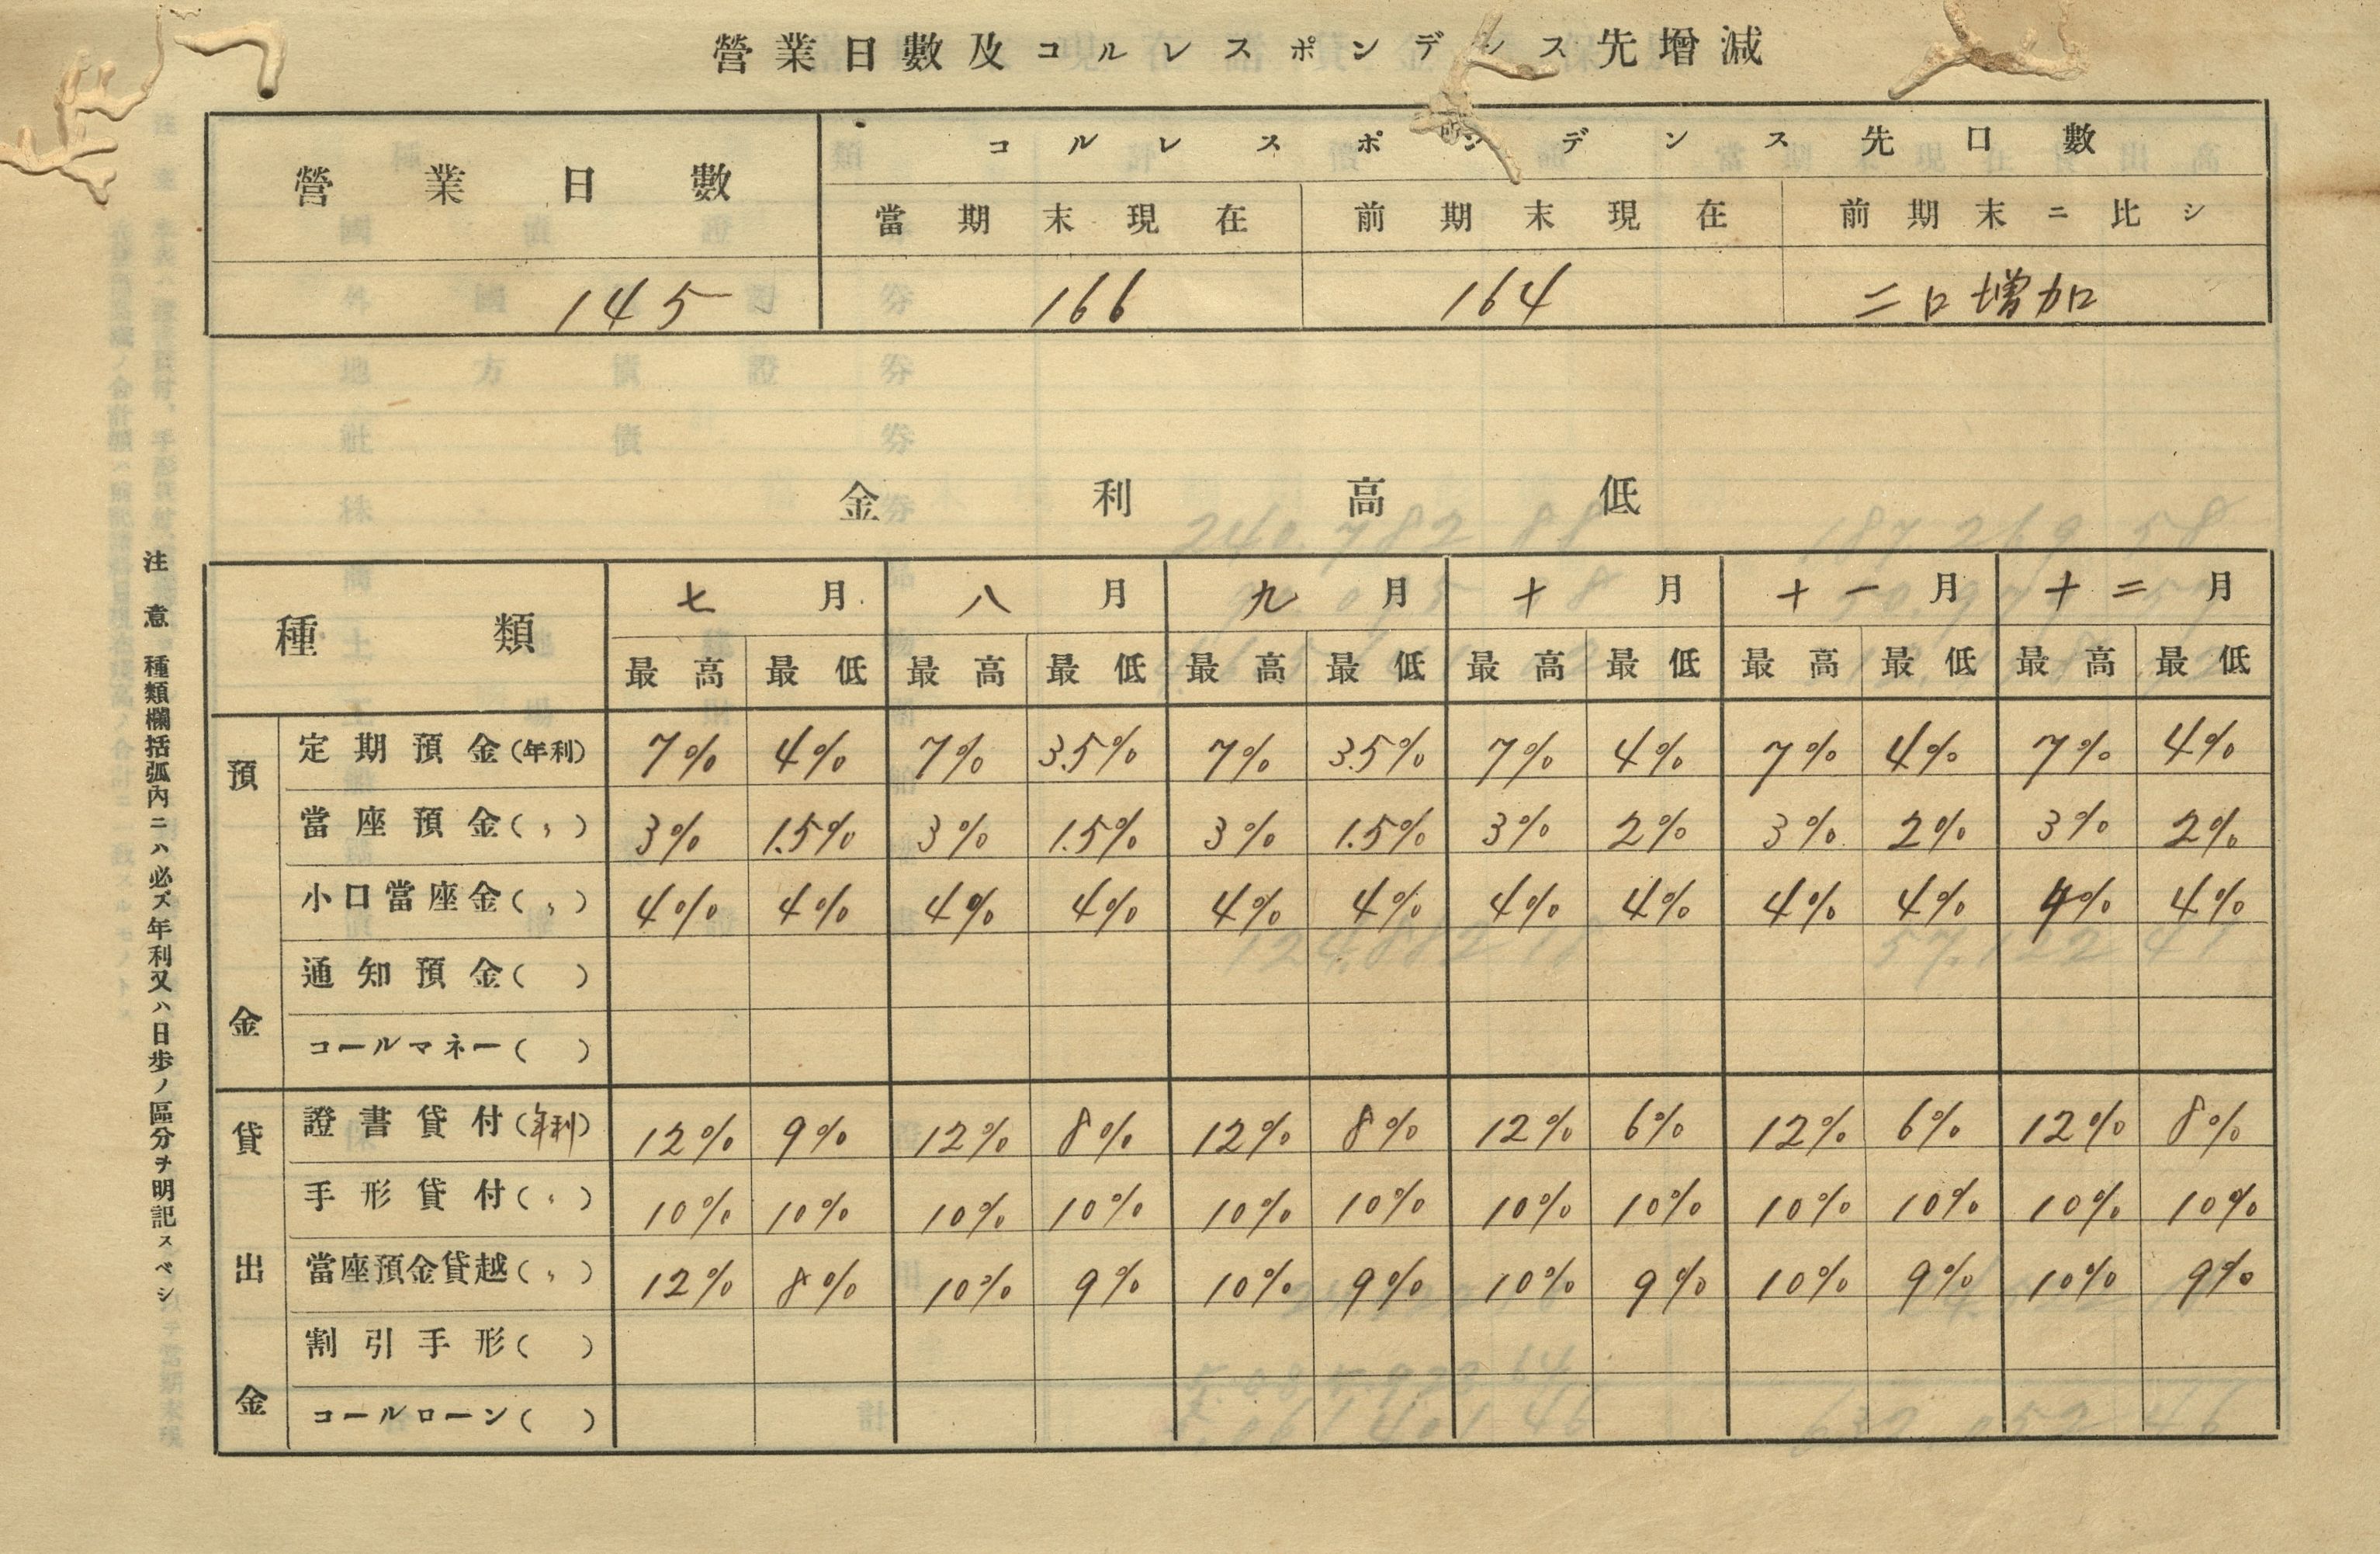 營業日數及コルレスポンデンス先增減
營業日數 コルレスポンデンス先口數
當期末現在 前期末現在 前期末ニ比シ
145 166 164 二口增加
金利高低
種類 七月 八月 九月 十月 十一月 十二月
最高 最低 最高 最低 最高 最低 最高 最低 最高 最低 最高 最低
預金
定期預金(年利) 7% 4% 7% 3.5% 7% 3.5% 7% 4% 7% 4% 7% 4%
當座預金(〃) 3% 1.5% 3% 1.5% 3% 1.5% 3% 2% 3% 2% 3% 2%
小口當座金(〃) 4% 4% 4% 4% 4% 4% 4% 4% 4% 4% 4% 4%
通知預金( )
コールマネー( )
貸出金
證書貸付(年利) 12% 9% 12% 8% 12% 8% 12% 6% 12% 6% 12% 8%
手形貸付(〃) 10% 10% 10% 10% 10% 10% 10% 10% 10% 10% 10% 10%
當座預金貸越(〃) 12% 8% 10% 9% 10% 9% 10% 9% 10% 9% 10% 9%
割引手形( )
コールローン( )
注意 種類欄括弧內ニハ必ズ年利又ハ日步ノ區分ヲ明記スベシ